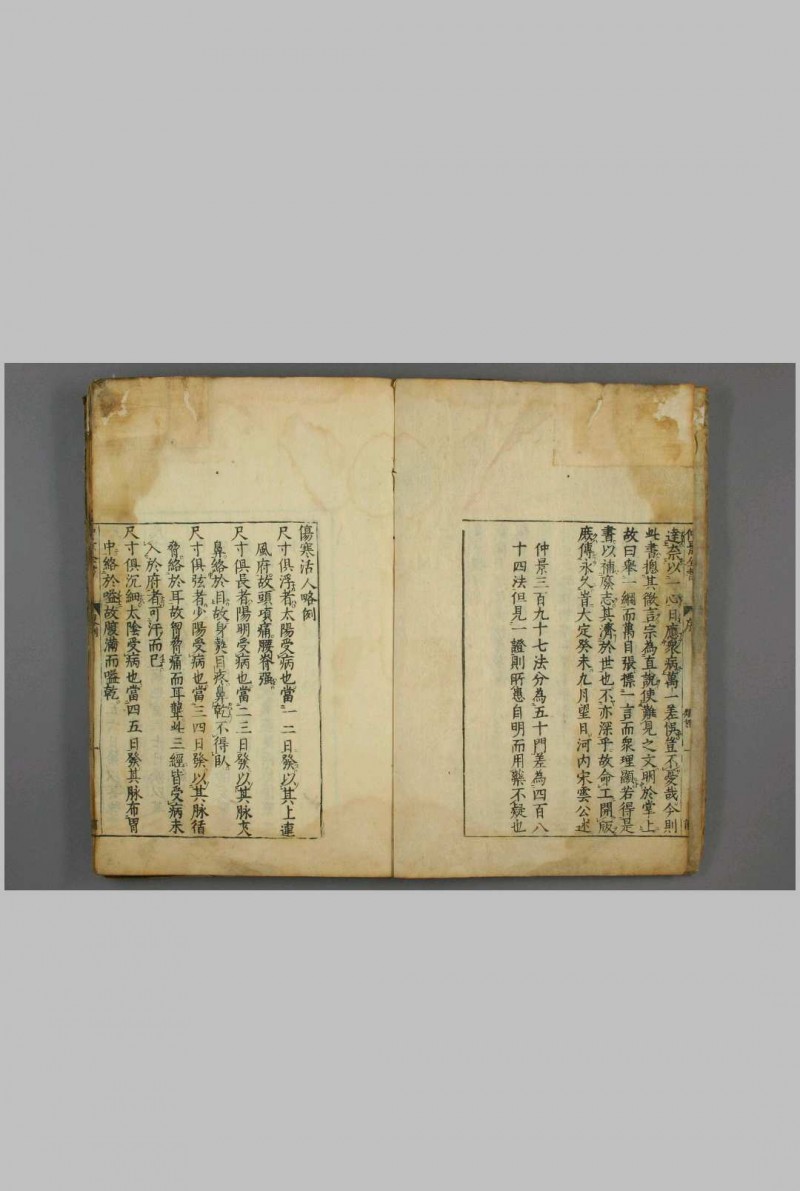 達奈以一心日應衆病萬一差悞豈不憂哉今則
此書摠其微言宗為直說使難見之文明於掌上
故曰舉一綱而萬目張摽一言而衆理顯若得是
書以補廢志其濟於世也不亦深乎故命工開版
庶傳永久旹大定癸未九月望日河内宋雲公述
仲景三百九十七法分為五十門差為四百八
十四法但見一證則所憑自明而用藥不疑也
傷寒活人略例
尺寸俱浮者太陽受病也當一二日發以其上連
風府故頭項痛腰脊强
尺寸俱長者陽明受病也當二三日發以其脉夾
鼻絡於目故身熱目疼鼻乾不得臥
尺寸俱弦者少陽受病也當三四日發以其脉循
脅絡於耳故胷脅痛而耳聾此三經皆受病未
入於府者可汗而已
尺寸俱沉細太陰受病也當四五日發其脉布胃
中絡於嗌故腹滿而嗌乾